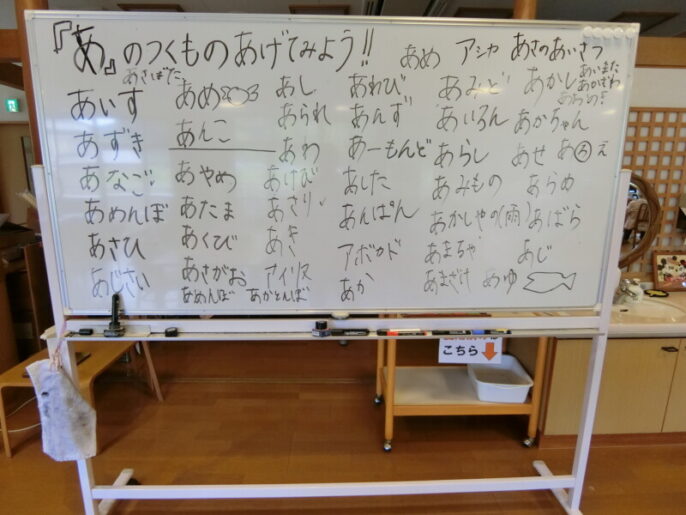 『あ』のつくものあげてみよう!!
あさぼらた
あいす
あずき
あなご
あめんぼ
あさひ
あじさい
あめ
あんこ
あやめ
あたま
あくび
あさがお
あめんぼ
あし
あられ
あわ
あけび
あさり
あき
アイリス
あかとんぼ
あわび
あんず
あーもんど
あした
あんぱん
アボカド
あか
あめ
あみど
あいろん
あらし
あみもの
あかしやの(雨)
あまちゃ
あまざけ
アシカ
あさのあいさつ
あかし
あかちゃん
あせ
あらめ
あばら
あじ
あゆ
こちら